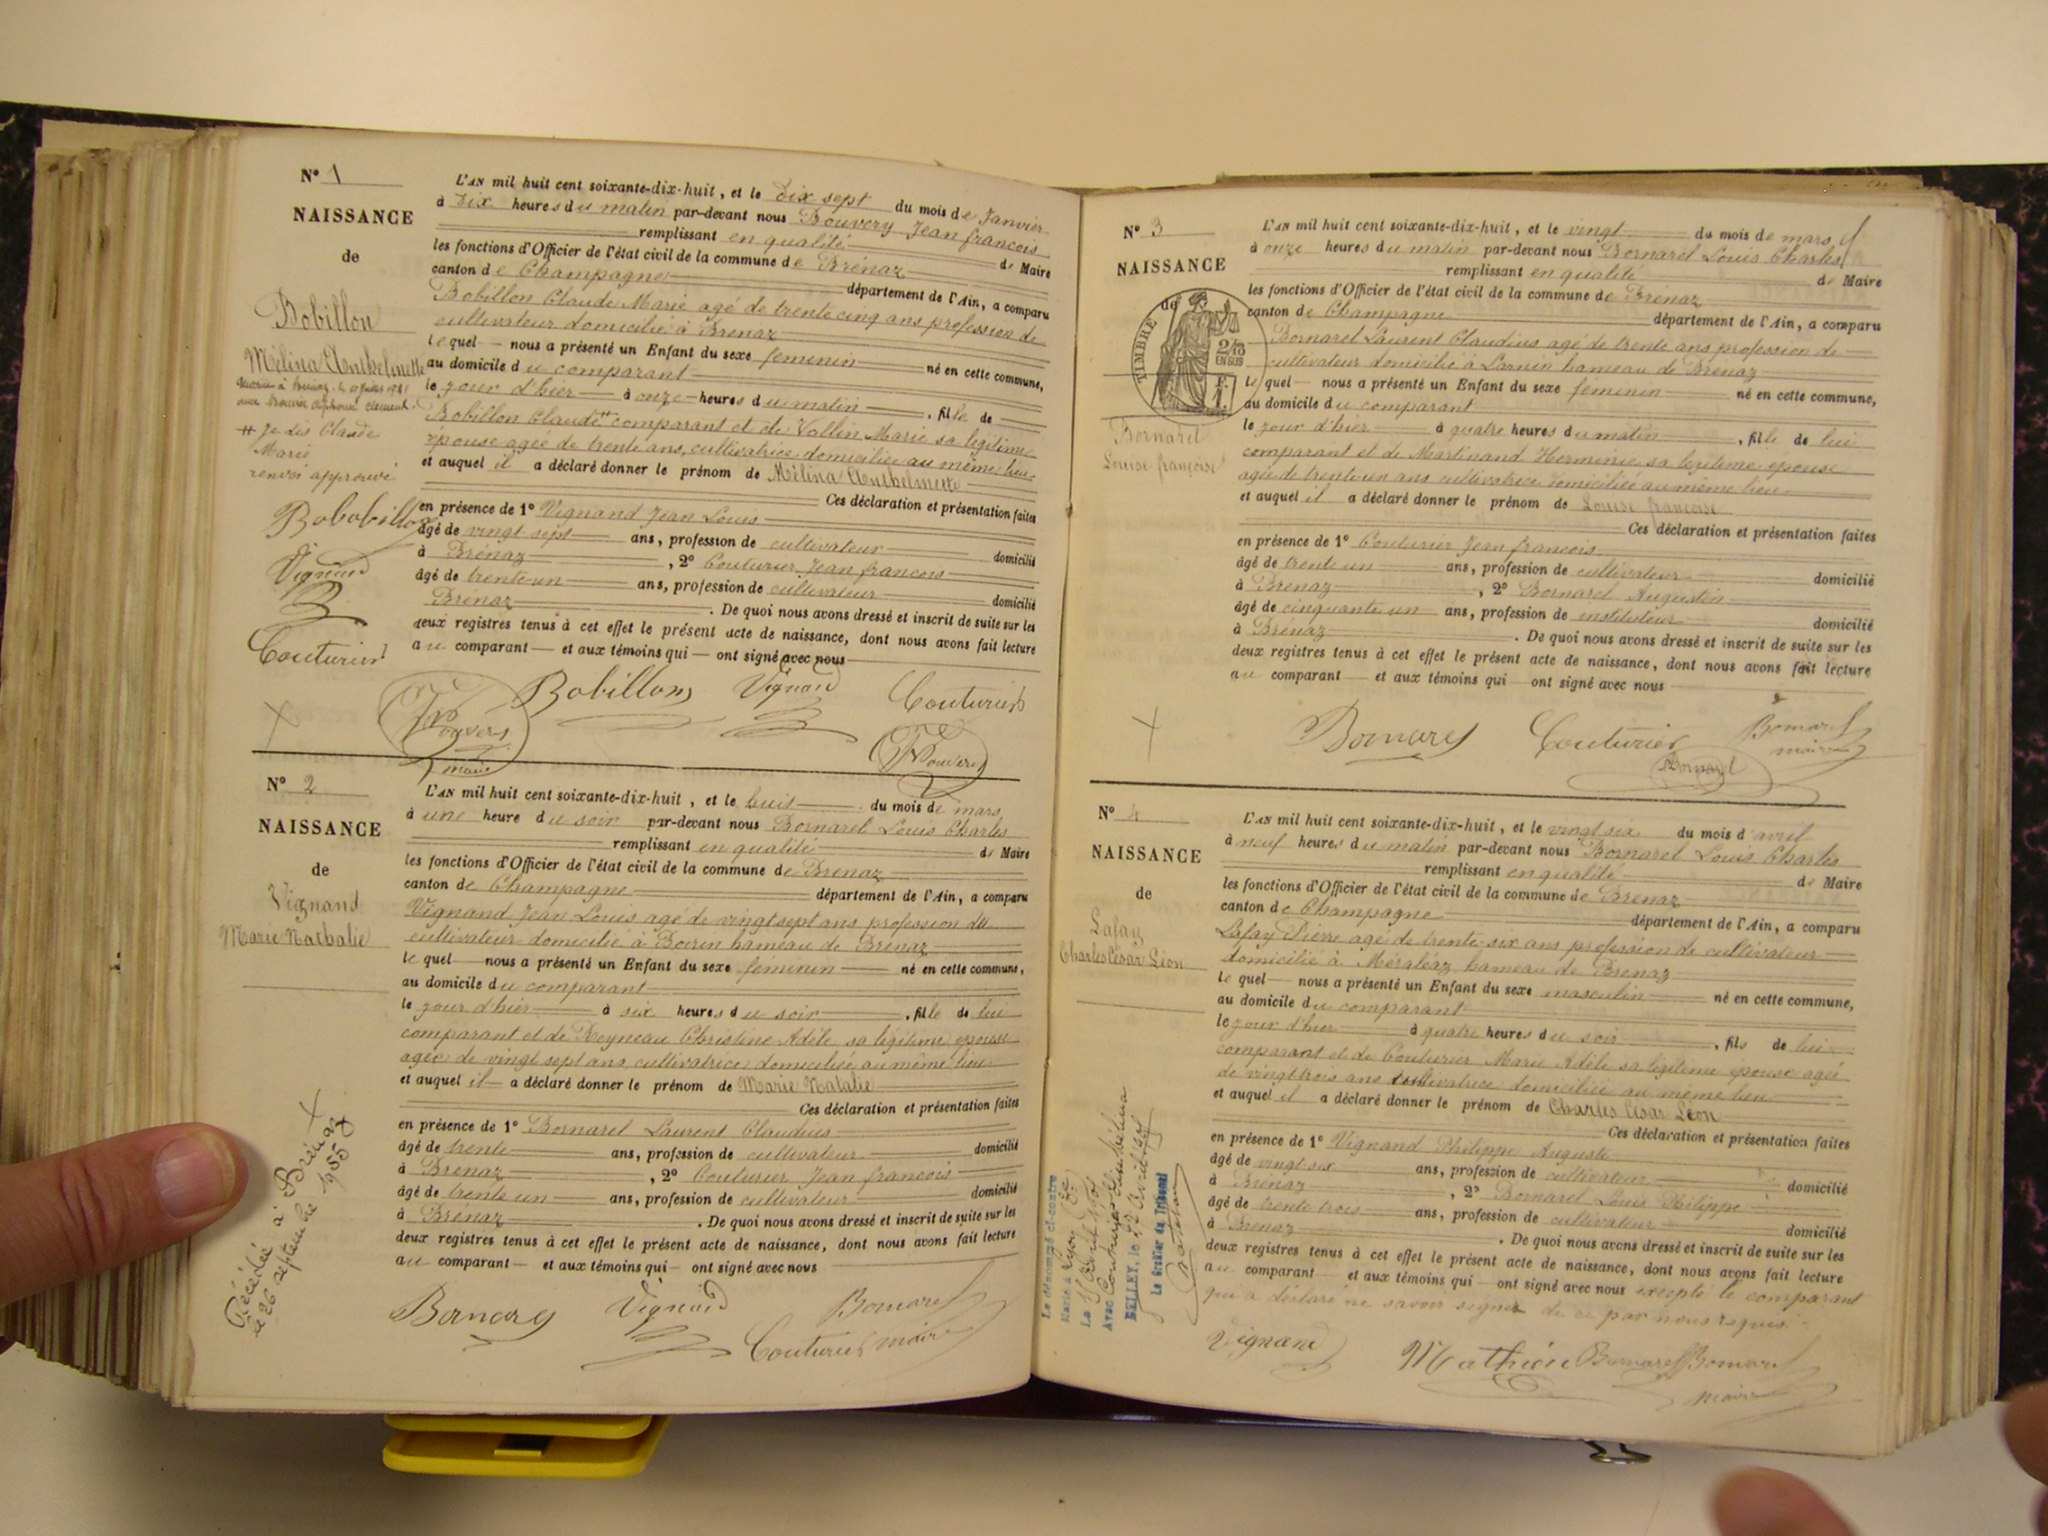 N° 1
NAISSANCE
de
Bobillon
Mélina Anthelmette
# Je dis Claude
Marie
renvoi approuvé
Bobillon
Vignand
Couturier
L'AN mil huit cent soixante-dix-huit, et le Dix sept du mois de Janvier
à Dix heures du matin par-devant nous Bouvery Jean françois
remplissant en qualité de Maire
les fonctions d'Officier de l'état civil de la commune de Brénaz
canton de Champagne département de l'Ain, a comparu
Bobillon Claude Marie agé de trente cinq ans profession de
cultivateur domicilié à Brenaz
lequel nous a présenté un Enfant du sexe feminin né en cette commune,
au domicile du comparant
le jour d'hier à onze heures du matin, fille de
Bobillon Claude # comparant et de Vallin Marie sa légitime
épouse agée de trente ans, cultivatrice domiciliée au même lieu
et auquel il a déclaré donner le prénom de Mélina Anthelmette
Ces déclaration et présentation faites
en présence de 1° Vignand Jean Louis
âgé de vingt sept ans, profession de cultivateur domicilié
à Brénaz, 2° Couturier Jean francois
âgé de trente un ans, profession de cultivateur domicilié
Brénaz. De quoi nous avons dressé et inscrit de suite sur les
deux registres tenus à cet effet le présent acte de naissance, dont nous avons fait lecture
au comparant et aux témoins qui ont signé avec nous
Bobillon Vignand Couturier
Bouvery
maire
N° 2
NAISSANCE
de
Vignand
Marie Nathalie
Décédée à Brénaz
le 26 septembre 1955
L'AN mil huit cent soixante-dix-huit, et le huit du mois de mars
à une heure du soir par-devant nous Bornarel Louis Charles
remplissant en qualité de Maire
les fonctions d'Officier de l'état civil de la commune de Brenaz
canton de Champagne département de l'Ain, a comparu
Vignand Jean Louis agé de vingt sept ans profession de
cultivateur domicilié à Boirin hameau de Brénaz
lequel nous a présenté un Enfant du sexe féminin né en cette commune,
au domicile du comparant
le jour d'hier à six heures du soir, fille de lui
comparant et de Reyneau Christine Adèle sa légitime epouse
agée de vingt sept ans, cultivatrice domiciliée au même lieu
et auquel il a déclaré donner le prénom de Marie Natalie
Ces déclaration et présentation faites
en présence de 1° Bornarel Laurent Claudius
âgé de trente ans, profession de cultivateur domicilié
à Brénaz, 2° Couturier Jean francois
âgé de trente un ans, profession de cultivateur domicilié
à Brénaz. De quoi nous avons dressé et inscrit de suite sur les
deux registres tenus à cet effet le présent acte de naissance, dont nous avons fait lecture
au comparant et aux témoins qui ont signé avec nous
Bornarel Vignand Bornarel
Couturier maire
N° 3
NAISSANCE
de
TIMBRE
2/10
EN SUS
Bornarel
Louise françoise
L'AN mil huit cent soixante-dix-huit, et le vingt du mois de mars
à onze heures du matin par-devant nous Bornarel Louis Charles
remplissant en qualité de Maire
les fonctions d'Officier de l'état civil de la commune de Brénaz
canton de Champagne département de l'Ain, a comparu
Bornarel Laurent Claudius agé de trente ans profession de
cultivateur domicilié à Larnin hameau de Brenaz
lequel nous a présenté un Enfant du sexe féminin né en cette commune,
au domicile du comparant
le jour d'hier à quatre heures du matin, fille de lui
comparant et de Martinand Herminie sa legitime epouse
agée de trente un ans cultivatrice domiciliée au même lieu
et auquel il a déclaré donner le prénom de Louise françoise
Ces déclaration et présentation faites
en présence de 1° Couturier Jean françois
âgé de trente un ans, profession de cultivateur domicilié
à Brenaz, 2° Bornarel Augustin
âgé de cinquante un ans, profession de instituteur domicilié
à Brénaz. De quoi nous avons dressé et inscrit de suite sur les
deux registres tenus à cet effet le présent acte de naissance, dont nous avons fait lecture
au comparant et aux témoins qui ont signé avec nous
Bornarel Couturier Bornarel
maire
Bornarel
N° 4
NAISSANCE
de
Lafay
Charles César Léon
Le dénommé ci-contre
Marié à Lyon
Le Avril
Avec
BELLEY, le 22 Avril
Le Greffier du Tribunal
L'AN mil huit cent soixante-dix-huit, et le vingt six du mois d'avril
à neuf heures du matin par-devant nous Bornarel Louis Charles
remplissant en qualité de Maire
les fonctions d'Officier de l'état civil de la commune de Brenaz
canton de Champagne département de l'Ain, a comparu
Lafay Pierre agé de trente-six ans profession de cultivateur
domicilié à Méraléaz hameau de Brenaz
lequel nous a présenté un Enfant du sexe masculin né en cette commune,
au domicile du comparant
le jour d'hier à quatre heures du soir, fils de lui
comparant et de Couturier Marie Adèle sa légitime epouse agée
de vingt trois ans cultivatrice domiciliée au même lieu
et auquel il a déclaré donner le prénom de Charles César Léon
Ces déclaration et présentation faites
en présence de 1° Vignand Philippe Auguste
âgé de vingt-six ans, profession de cultivateur domicilié
à Brénaz, 2° Bornarel Louis Philippe
âgé de trente trois ans, profession de cultivateur domicilié
à Brenaz. De quoi nous avons dressé et inscrit de suite sur les
deux registres tenus à cet effet le présent acte de naissance, dont nous avons fait lecture
au comparant et aux témoins qui ont signé avec nous excepté le comparant
qui a déclaré ne savoir signer de ce par nous requis
Vignand Mathieu Bornarel Bornarel
maire